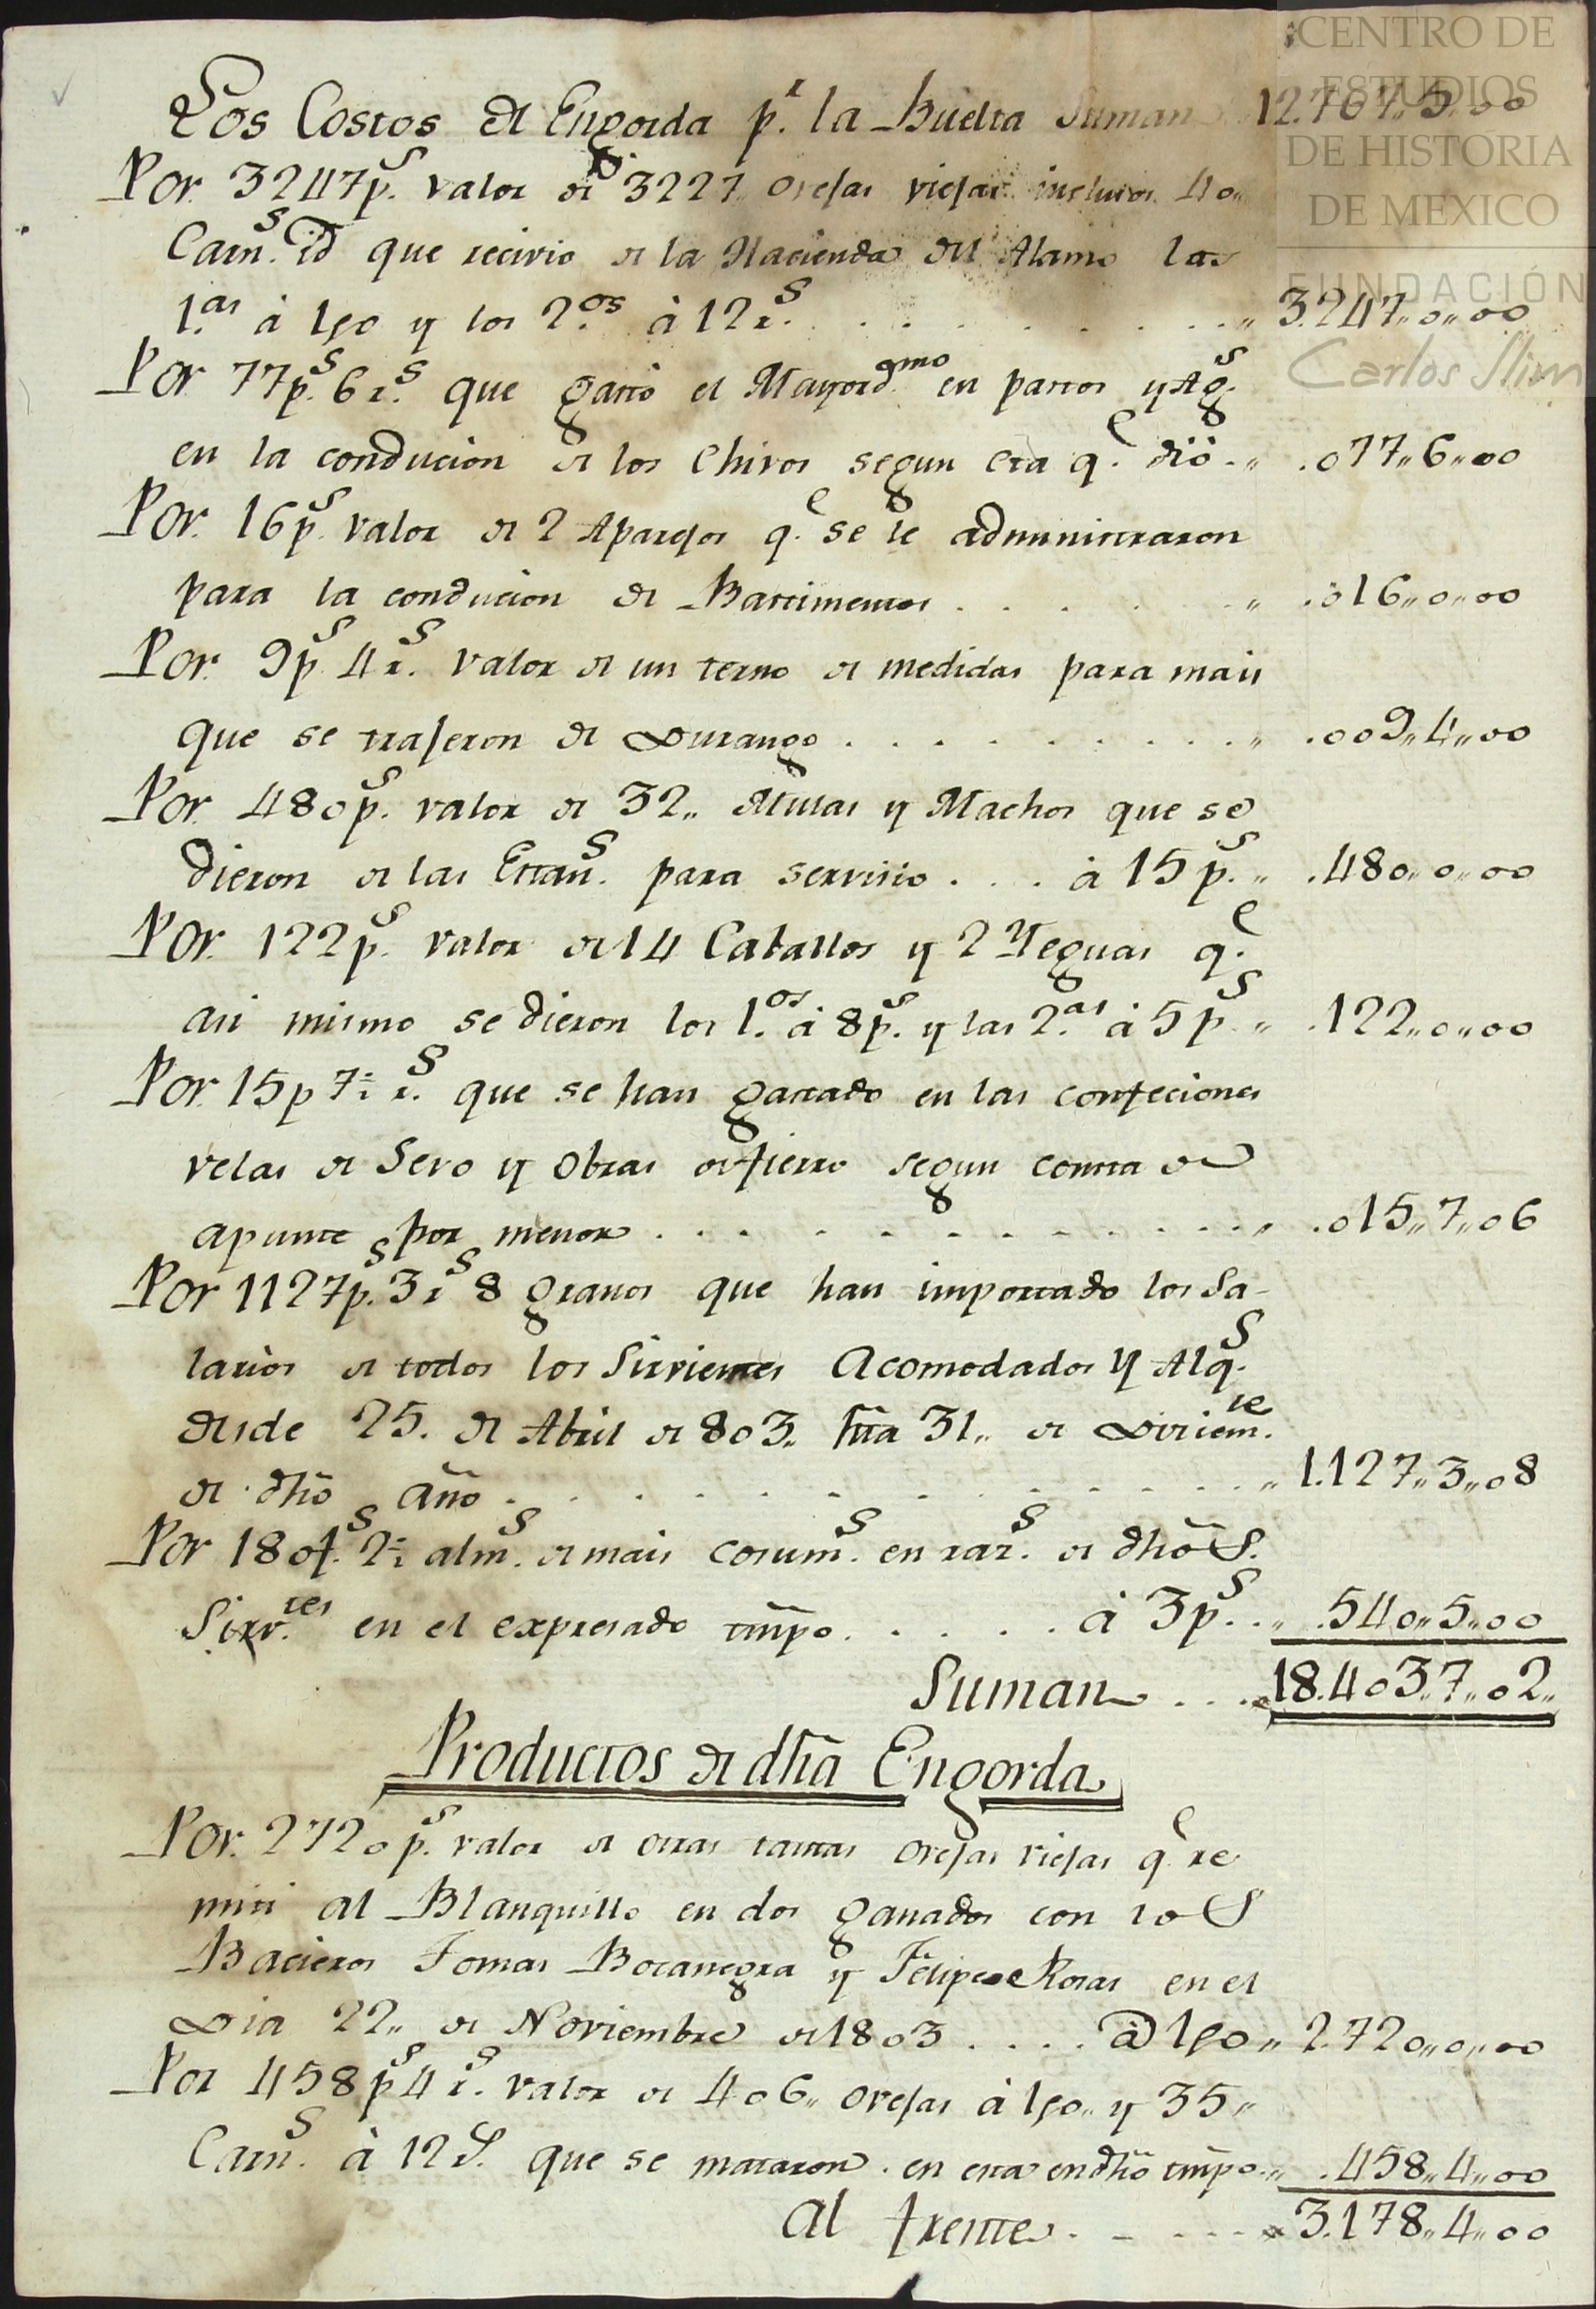 Los Costos de Engorda pr. la Buelta Suman 12.767,,5,,00
Por. 3247ps. valor de 3227,, ovejas viejas inclusos 40,,
Carns. id que recivio de la Hacienda del Alamo las
1.as à 1po y los 2.os à 12 rs. . . . . . . . . ,, 3.247,,0,,00
Por 77ps. 6 rs. que gastó el Mayordmo en pastos y Ags.
en la conducion de los Chivos segun cta qe. dió . ,, .077,,6,,00
Por. 16ps. valor de 2 Aparejos qe. se le administraron
para la conducion de Bastimentos . . . . . . ,, .016,,0,,00
Por. 9ps. 4 rs. valor de un terno de medidas para mais
que se trajeron de Durango . . . . . . . . . . ,, .009,,4,,00
Por. 480ps. valor de 32,, Mulas y Machos que se
dieron de las Estans. para servisio . . . à 15 ps. ,, .480,,0,,00
Por. 122ps. valor de 14 Caballos y 2 Yeguas qe.
asi mismo se dieron los 1.os à 8ps. y las 2.as à 5 ps. ,, .122,,0,,00
Por. 15p 7½ rs. que se han gastado en las confeciones
velas de Sevo y Obras de fierro segun consta de
apunte por menor . . . . . . . . . . . . ,, .015,,7,,06
Por 1127ps. 3 rs 8 granos que han importado los Sa-
larios de todos los Sirvientes Acomodados y Alqs.
desde 25. de Abril de 803,, hta 31,, de Diziemre.
de dho año . . . . . . . . . . . . . . ,, 1.127,,3,,08
Por 180fs. 2½ alms. de mais cosums. en razs. de dhos.
Sirv.tes en el expresado tmpo. . . . . à 3ps. . ,, .540,,5,,00
Suman . . . 18.403,,7,,02,,
Productos de dha Engorda
Por. 2720ps. valor de otras tantas ovejas viejas qe re
miti al Blanquillo en dos ganados con los
Bacieros Tomas Bocanegra y Felipe Rosas en el
Dia 22,, de Noviembre de 1803 . . . . à 1po ,, 2.720,,0,,00
Por 458ps 4 rs. valor de 406,, ovejas à 1po,, y 35,,
Carns. à 12 rs. que se mataron en esta en dho tmpo . ,, .458,,4,,00
Al frente . - . . . . 3.178,,4,,00
CENTRO DE
ESTUDIOS
DE HISTORIA
DE MEXICO
FUNDACIÓN
Carlos Slim